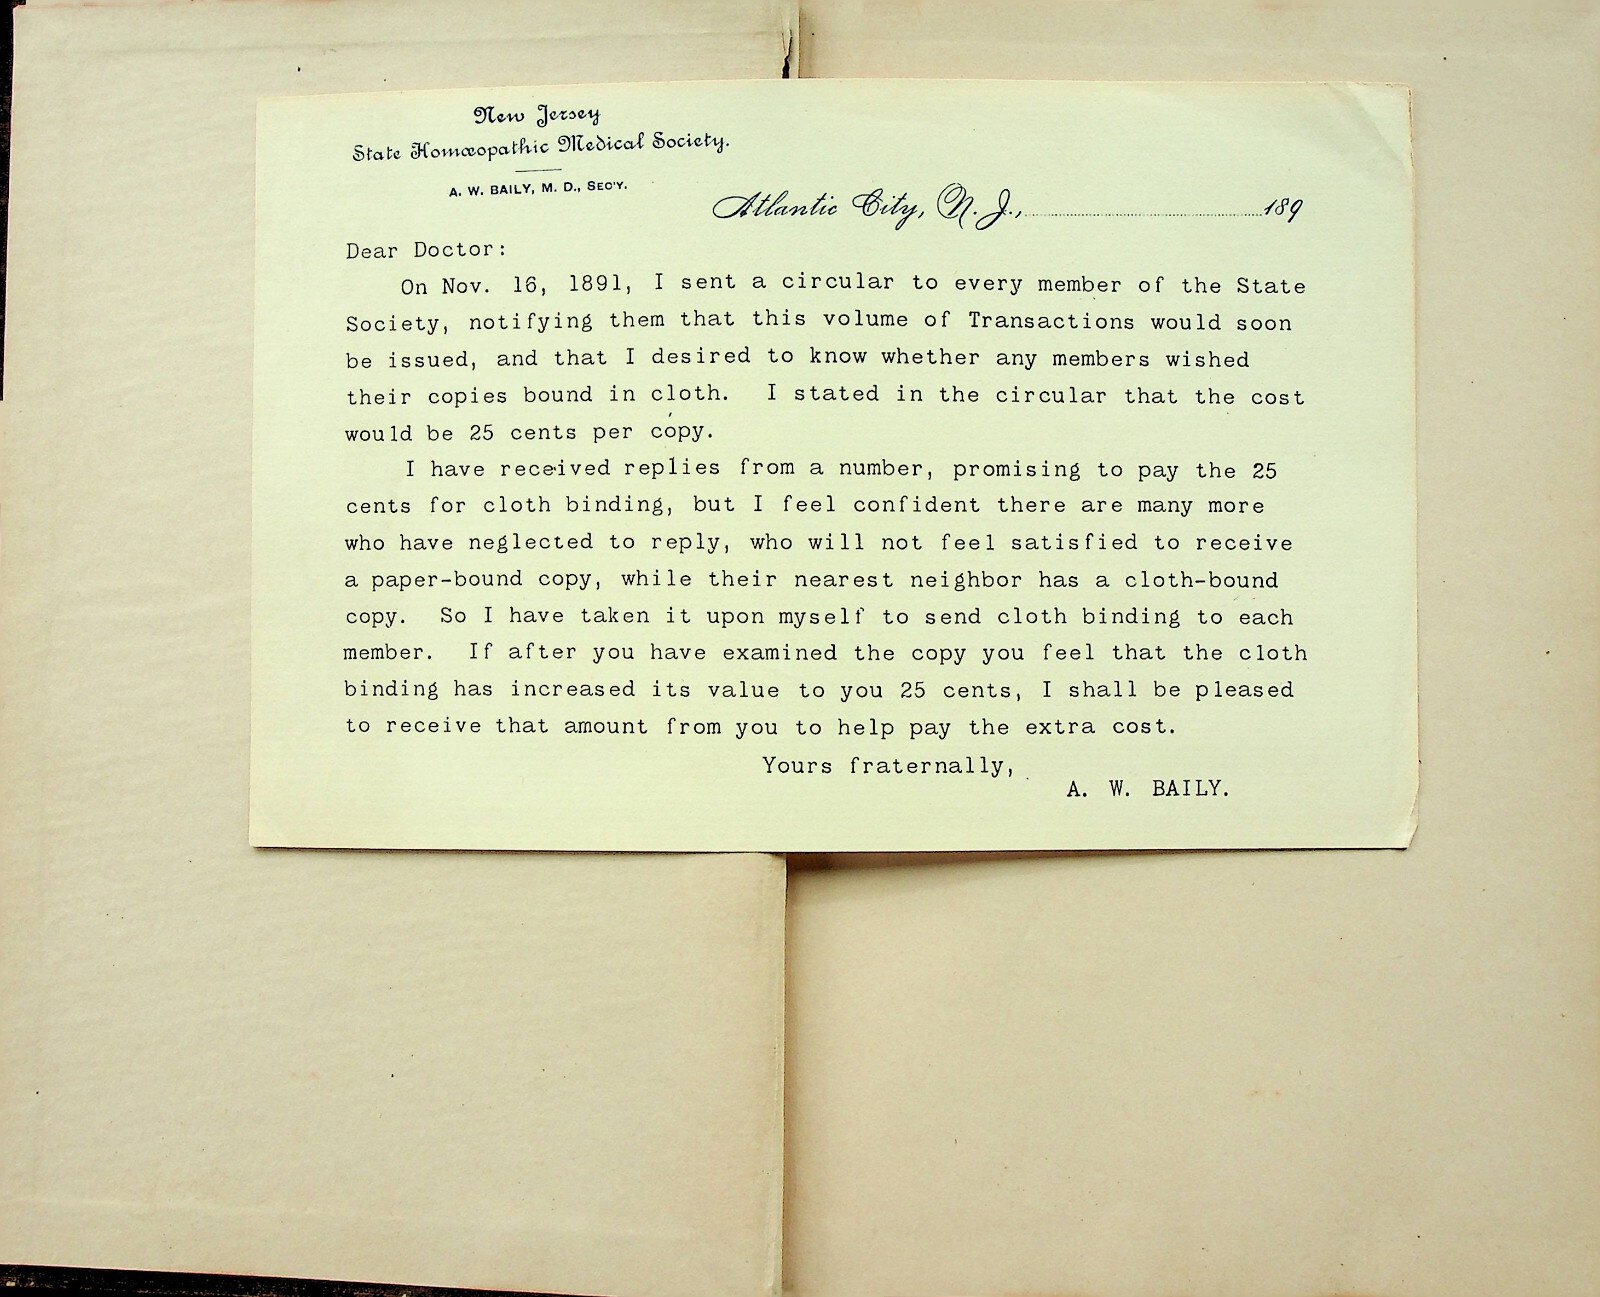 New Jersey
State Homœopathic Medical Society.
A. W. BAILY, M. D., SEC'Y.
Atlantic City, N. J., 189
Dear Doctor:
On Nov. 16, 1891, I sent a circular to every member of the State
Society, notifying them that this volume of Transactions would soon
be issued, and that I desired to know whether any members wished
their copies bound in cloth. I stated in the circular that the cost
would be 25 cents per copy.
I have received replies from a number, promising to pay the 25
cents for cloth binding, but I feel confident there are many more
who have neglected to reply, who will not feel satisfied to receive
a paper-bound copy, while their nearest neighbor has a cloth-bound
copy. So I have taken it upon myself to send cloth binding to each
member. If after you have examined the copy you feel that the cloth
binding has increased its value to you 25 cents, I shall be pleased
to receive that amount from you to help pay the extra cost.
Yours fraternally,
A. W. BAILY.